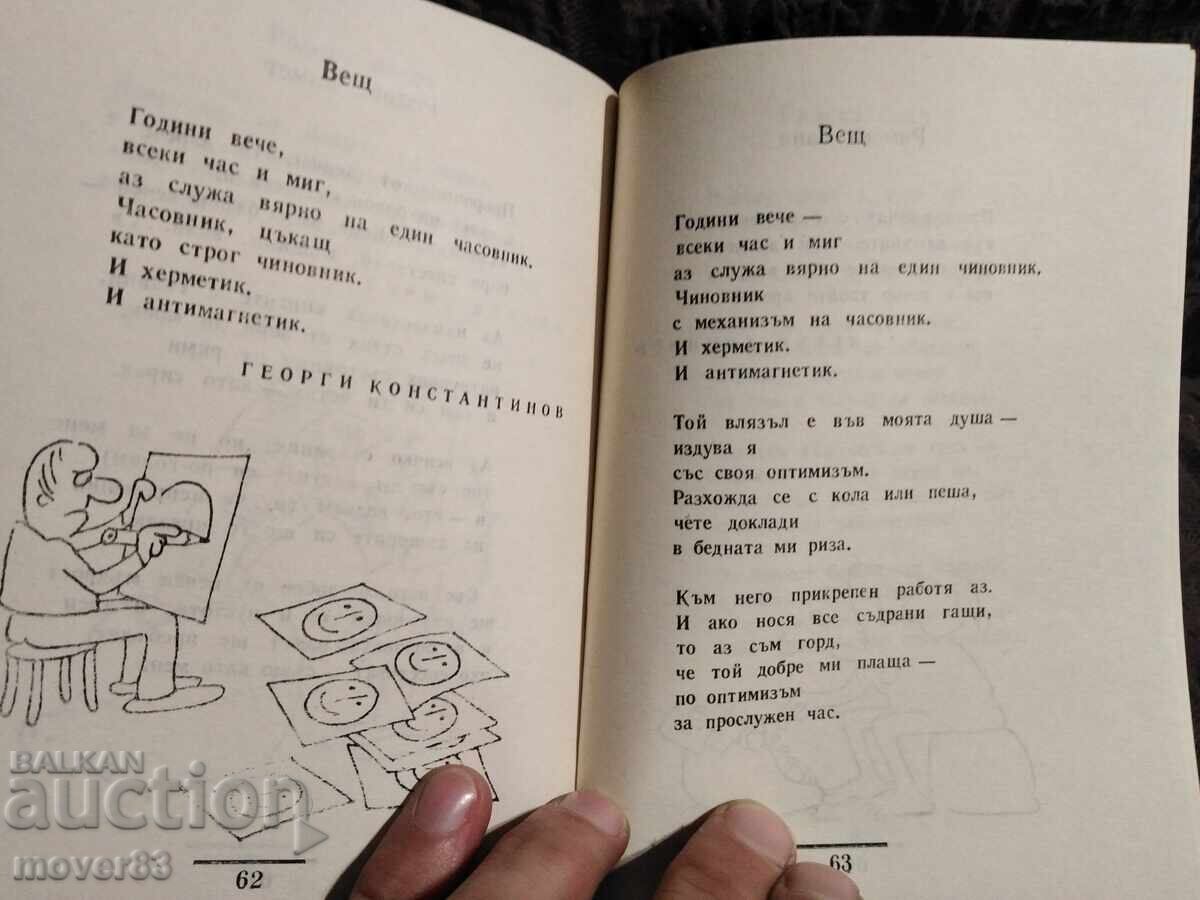 Вещ
Години вече,
всеки час и миг,
аз служа вярно на един часовник.
Часовник, цъкащ
като строг чиновник.
И херметик.
И антимагнетик.
ГЕОРГИ КОНСТАНТИНОВ
62
Вещ
Години вече —
всеки час и миг
аз служа вярно на един чиновник.
Чиновник
с механизъм на часовник.
И херметик.
И антимагнетик.
Той влязъл е във моята душа —
издува я
със своя оптимизъм.
Разхожда се с кола или пеша,
чете доклади
в бедната ми риза.
Към него прикрепен работя аз.
И ако нося все съдрани гащи,
то аз съм горд,
че той добре ми плаща —
по оптимизъм
за прослужен час.
63
BALKAN
auction
mover83